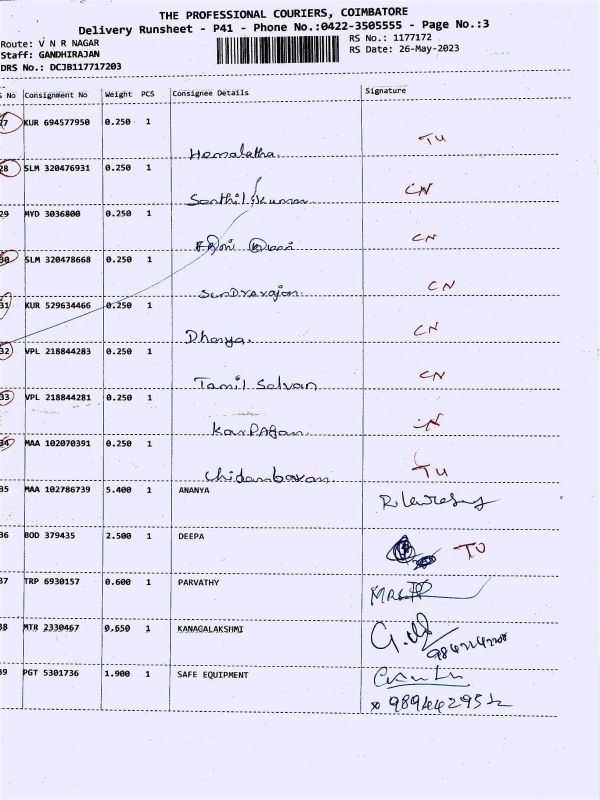 THE PROFESSIONAL COURIERS, COIMBATORE
Delivery Runsheet - P41 - Phone No.:0422-3505555 - Page No.:3
Route: V N R NAGAR RS No.: 1177172
Staff: GANDHIRAJAN RS Date: 26-May-2023
DRS No.: DCJB117717203
No Consignment No Weight PCS Consignee Details Signature
27 KUR 694577950 0.250 1 Hemalatha TU
28 SLM 320476931 0.250 1 Senthil Kumar CN
29 MYD 3036800 0.250 1 CN
30 SLM 320478668 0.250 1 Sundrarajan CN
31 KUR 529634466 0.250 1 CN
32 VPL 218844283 0.250 1 Tamil Selvan CN
33 VPL 218844281 0.250 1 Karpagam
34 MAA 102070391 0.250 1 Chidambaram TU
35 MAA 102786739 5.400 1 ANANYA
36 BOD 379435 2.500 1 DEEPA TU
37 TRP 6930157 0.600 1 PARVATHY
38 MTR 2330467 0.650 1 KANAGALAKSHMI
39 PGT 5301736 1.900 1 SAFE EQUIPMENT